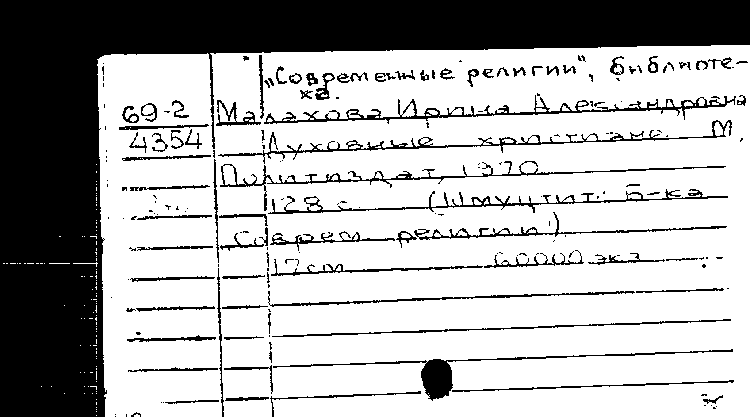 „Современные религии", библиоте-
ка.
69-2 Малахова, Ирина Александровна
4354 Духовные христиане. М.,
Политиздат, 1970
128 с. (Шмуцтит.: Б-ка
„Соврем. религии")
17 см 60000 экз